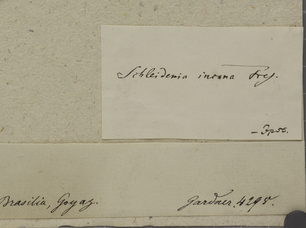 Schleidenia incana Frs.
Brasilia, Goyaz.
Gardner. 4295.